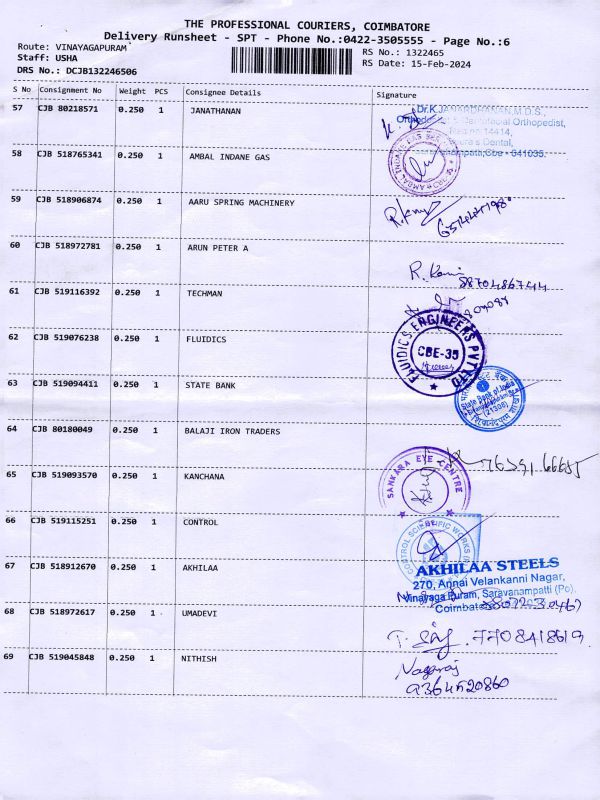 THE PROFESSIONAL COURIERS, COIMBATORE
Delivery Runsheet - SPT - Phone No.:0422-3505555 - Page No.:6
Route: VINAYAGAPURAM
Staff: USHA
DRS No.: DCJB132246506
RS No.: 1322465
RS Date: 15-Feb-2024
S No Consignment No Weight PCS Consignee Details Signature
57 CJB 80218571 0.250 1 JANATHANAN
Dr.K.JANARDHANAN,M.D.S.,
Orthopedist,
14414,
Dental,
641035.
58 CJB 518765341 0.250 1 AMBAL INDANE GAS
59 CJB 518906874 0.250 1 AARU SPRING MACHINERY
60 CJB 518972781 0.250 1 ARUN PETER A
8870486744
61 CJB 519116392 0.250 1 TECHMAN
62 CJB 519076238 0.250 1 FLUIDICS
FLUIDICS ENGINEERS PVT LTD
CBE-35
63 CJB 519094411 0.250 1 STATE BANK
State Bank of India
(21306)
64 CJB 80180049 0.250 1 BALAJI IRON TRADERS
76391.66655
65 CJB 519093570 0.250 1 KANCHANA
SANKARA EYE CENTRE
66 CJB 519115251 0.250 1 CONTROL
CONTROL SCIENTIFIC WORKS
67 CJB 518912670 0.250 1 AKHILAA
AKHILAA STEELS
270, Annai Velankanni Nagar,
Vinayaga Puram, Saravanampatti (Po),
Coimbatore
68 CJB 518972617 0.250 1 UMADEVI
7708418619
69 CJB 519045848 0.250 1 NITHISH
Nagaraj
9364520860